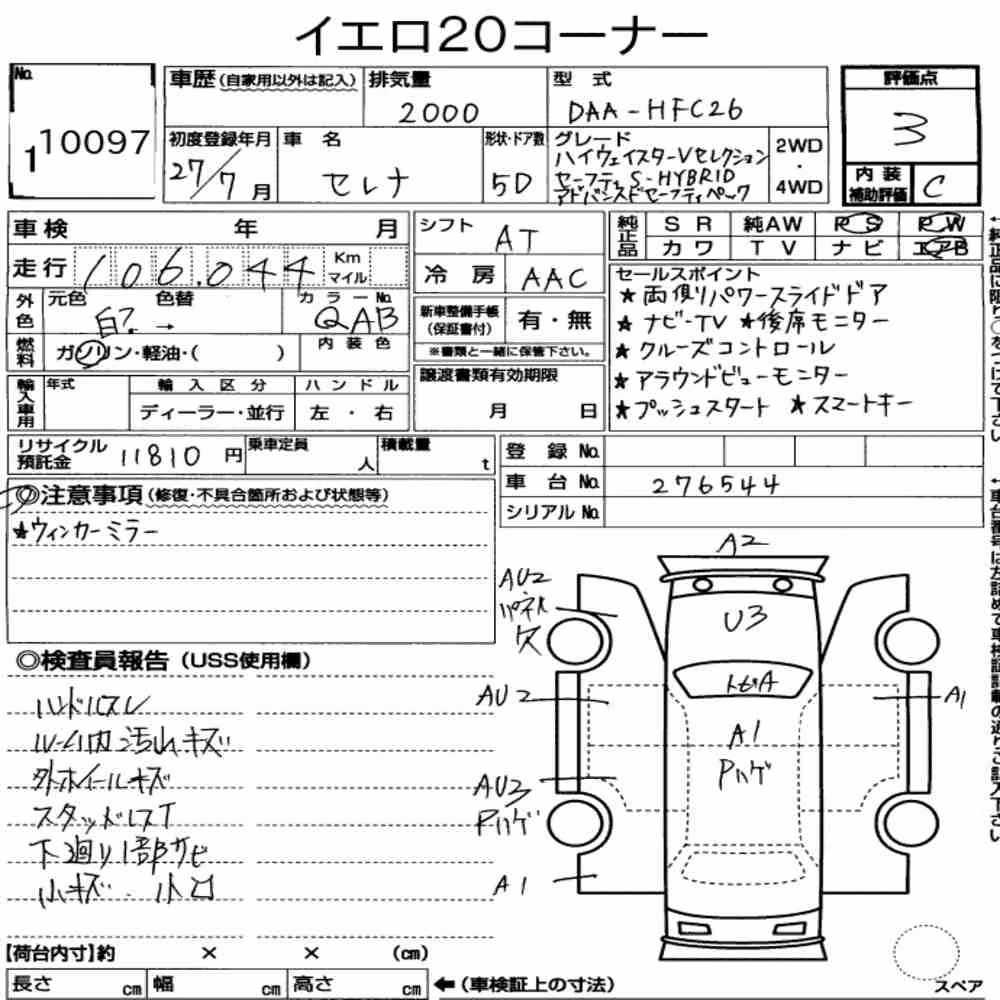 イエロ20コーナー
No. 1 10097
車歴 (自家用以外は記入)
排気量 2000
型式 DAA-HFC26
評価点 3
初度登録年月 27/7月
車名 セレナ
形状・ドア数 5D
グレード
ハイウェイスターVセレクション
セーフティ S-HYBRID
アドバンスドセーフティパック
2WD
・
4WD
内装補助評価 C
車検 年 月
走行 106,044 Km マイル
シフト AT
冷房 AAC
純正品 SR 純AW PS PW
カワ TV ナビ エアB
外色 元色 白? → 色替
カラーNo. QAB
燃料 ガソリン・軽油・( )
内装色
新車整備手帳(保証書付) 有・無
※書類と一緒に保管下さい。
セールスポイント
★両側パワースライドドア
★ナビ・TV ★後席モニター
★クルーズコントロール
★アラウンドビューモニター
★プッシュスタート ★スマートキー
輸入車用 年式 輸入区分 ハンドル
ディーラー・並行 左・右
譲渡書類有効期限
月 日
リサイクル預託金 11810円
乗車定員 人
積載量 t
登録No.
車台No. 276544
シリアルNo.
◎注意事項 (修復・不具合箇所および状態等)
★ウィンカーミラー
◎検査員報告 (USS使用欄)
ハンドルスレ
ルーム内汚れキズ
外ホイールキズ
スタッドレスT
下廻り1部サビ
小キズ、小凹
A2
AU2
パネル
欠
U3
トビA
AU2
A1
A1
Pハゲ
AU3
Pハゲ
A1
【荷台内寸】約 × × (cm)
長さ cm 幅 cm 高さ cm ←(車検証上の寸法)
スペア
←純正品に限り○をつけて下さい
←車台番号は左詰めで車検証記載の通りご記入下さい